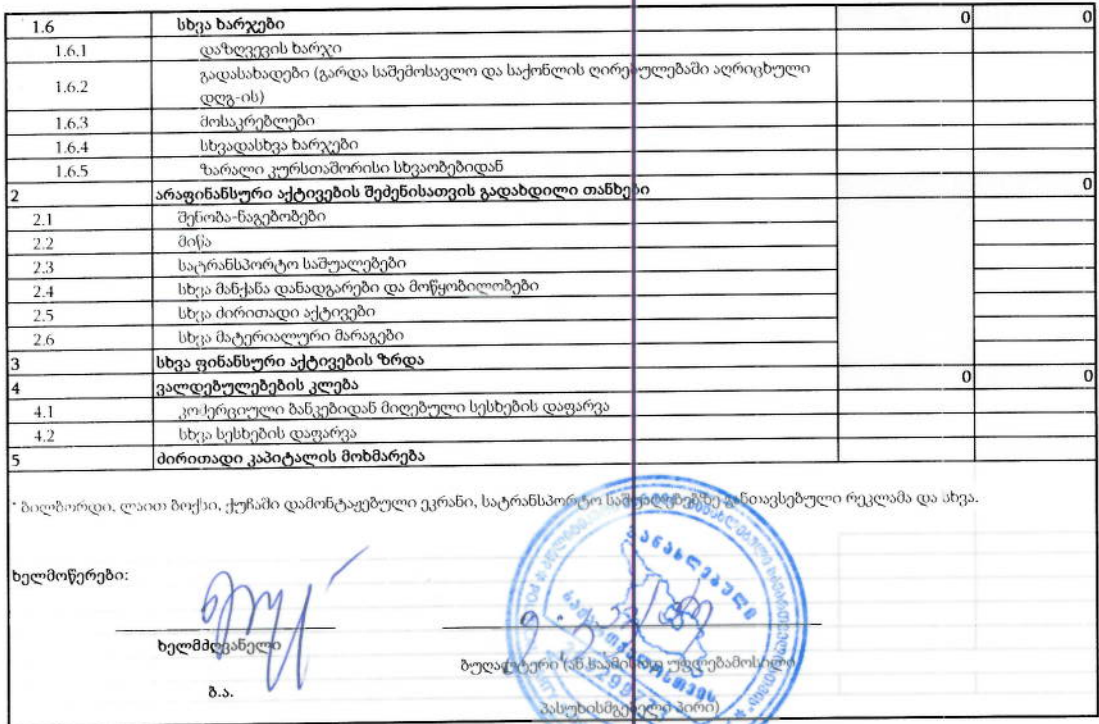 1.6 სხვა ხარჯები 0 0
1.6.1 დაზღვევის ხარჯი
1.6.2 გადასახადები (გარდა საშემოსავლო და საქონლის ღირებულებაში აღრიცხული
დღგ-ის)
1.6.3 მოსაკრებლები
1.6.4 სხვადასხვა ხარჯები
1.6.5 ზარალი კურსთაშორისი სხვაობებიდან
2 არაფინანსური აქტივების შეძენისათვის გადახდილი თანხები 0
2.1 შენობა-ნაგებობები
2.2 მიწა
2.3 სატრანსპორტო საშუალებები
2.4 სხვა მანქანა დანადგარები და მოწყობილობები
2.5 სხვა ძირითადი აქტივები
2.6 სხვა მატერიალური მარაგები
3 სხვა ფინანსური აქტივების ზრდა
4 ვალდებულებების კლება 0 0
4.1 კომერციული ბანკებიდან მიღებული სესხების დაფარვა
4.2 სხვა სესხების დაფარვა
5 ძირითადი კაპიტალის მოხმარება
* ბილბორდი, ლაით ბოქსი, ქუჩაში დამონტაჟებული ეკრანი, სატრანსპორტო საშუალებებზე განთავსებული რეკლამა და სხვა.
ხელმოწერები:
ხელმძღვანელი
ბუღალტერი (ან საამისოდ უფლებამოსილი
ბ.ა.
პასუხისმგებელი პირი)
განახლებული
საქართველოსთვის